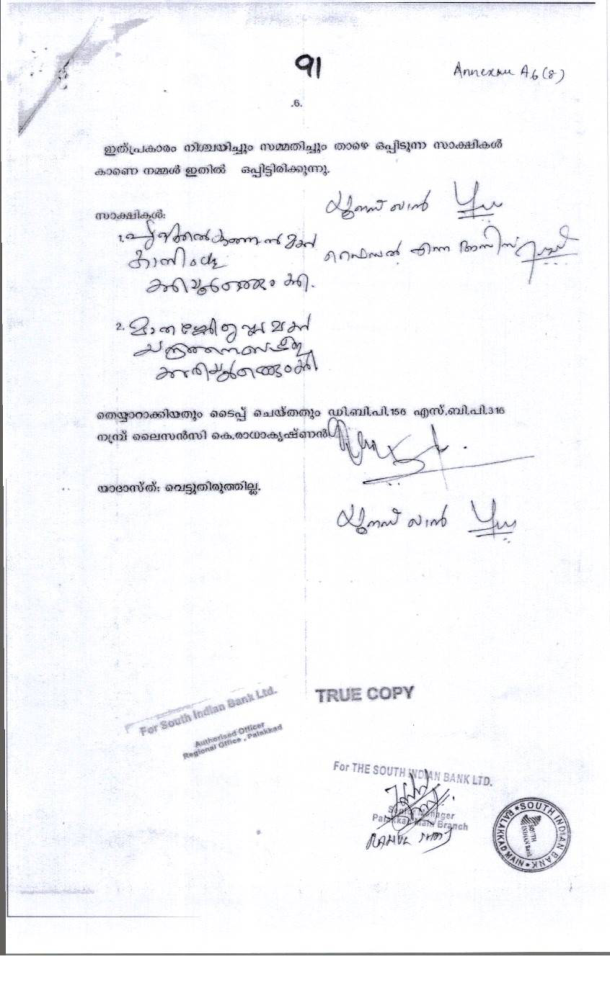 91
Annexure A6(8)
.6.
ഇത്പ്രകാരം നിശ്ചയിച്ചും സമ്മതിച്ചും താഴെ ഒപ്പിടുന്ന സാക്ഷികൾ
കാണെ നമ്മൾ ഇതിൽ ഒപ്പിട്ടിരിക്കുന്നു.
യൂനസ് ഖാൻ
സാക്ഷികൾ:
1.
ഫൈസൽ എന്ന അനീസ്
2.
തെയ്യാറാക്കിയതും ടൈപ്പ് ചെയ്തതും ഡി.ബി.പി.156 എസ്.ബി.പി.316
നമ്പ്ര് ലൈസൻസി കെ.രാധാകൃഷ്ണൻ
യാദാസ്ത്: വെട്ടുതിരുത്തില്ല.
യൂനസ് ഖാൻ
TRUE COPY
For South Indian Bank Ltd.
Authorised Officer
Regional Office, Palakkad
For THE SOUTH INDIAN BANK LTD.
Manager
Palakkad Main Branch
SOUTH INDIAN BANK
PALAKKAD MAIN